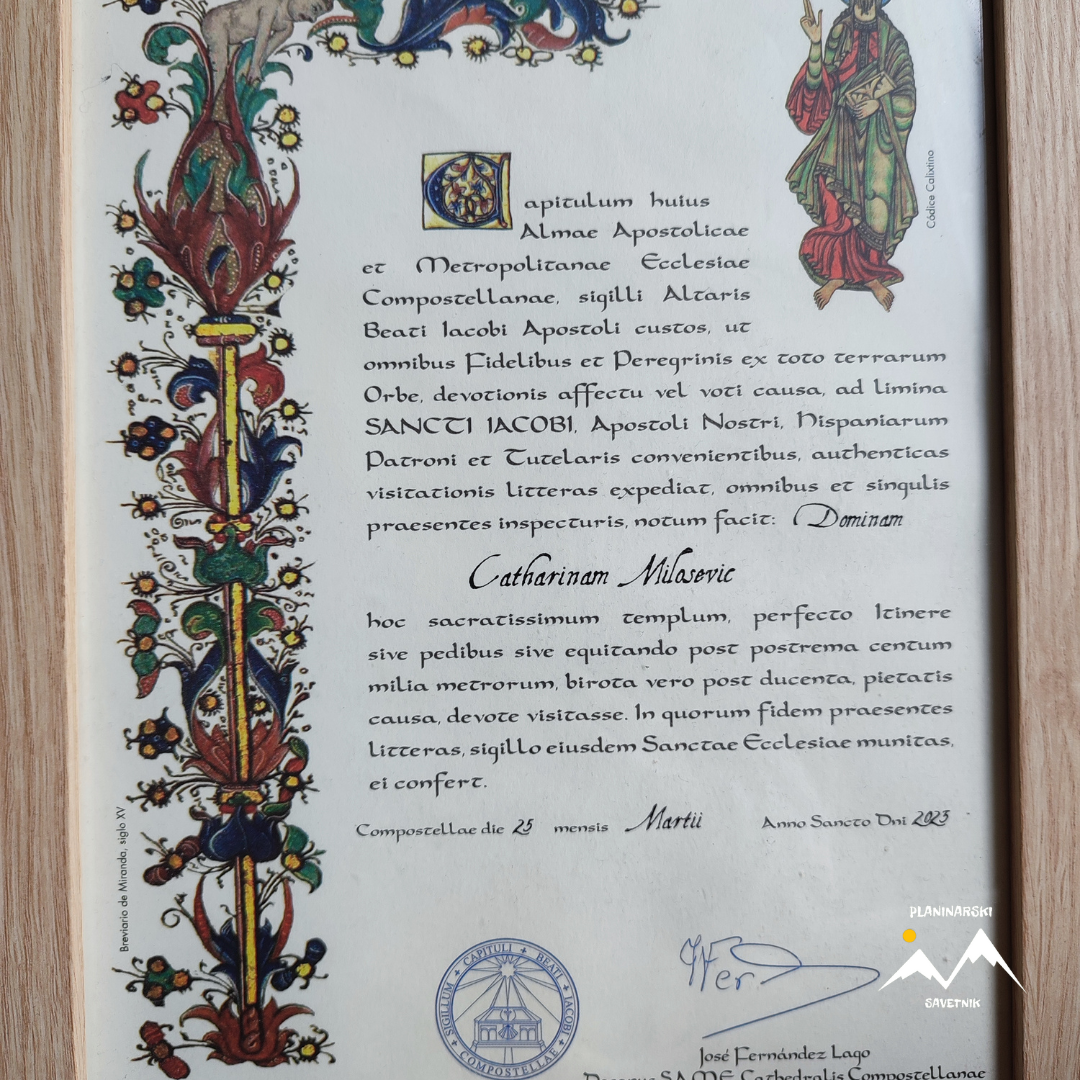 Capitulum huius
Almae Apostolicae
et Metropolitanae Ecclesiae
Compostellanae, sigilli Altaris
Beati Iacobi Apostoli custos, ut
omnibus Fidelibus et Peregrinis ex toto terrarum
Orbe, devotionis affectu vel voti causa, ad limina
SANCTI IACOBI, Apostoli Nostri, Hispaniarum
Patroni et Tutelaris convenientibus, authenticas
visitationis litteras expediat, omnibus et singulis
praesentes inspecturis, notum facit: Dominam
Catharinam Milosevic
hoc sacratissimum templum, perfecto Itinere
sive pedibus sive equitando post postrema centum
milia metrorum, birota vero post ducenta, pietatis
causa, devote visitasse. In quorum fidem praesentes
litteras, sigillo eiusdem Sanctae Ecclesiae munitas,
ei confert.
Compostellae die 25 mensis Martii Anno Sancto Dni 2023
Códice Calixtino
Breviario de Miranda, siglo XV
SIGILLUM + CAPITULI + BEATI + IACOBI + COMPOSTELLAE +
José Fernández Lago
S.A.M.E. Cathedralis Compostellanae
PLANINARSKI
SAVETNIK